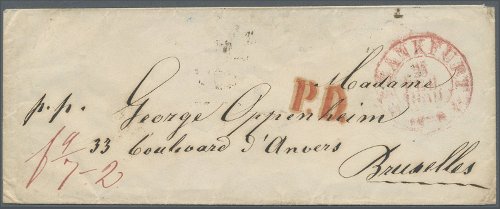 FRANKFURT
Madame
P.D.
p.p. George Oppenheim
33 boulevard d'Anvers
Bruxelles